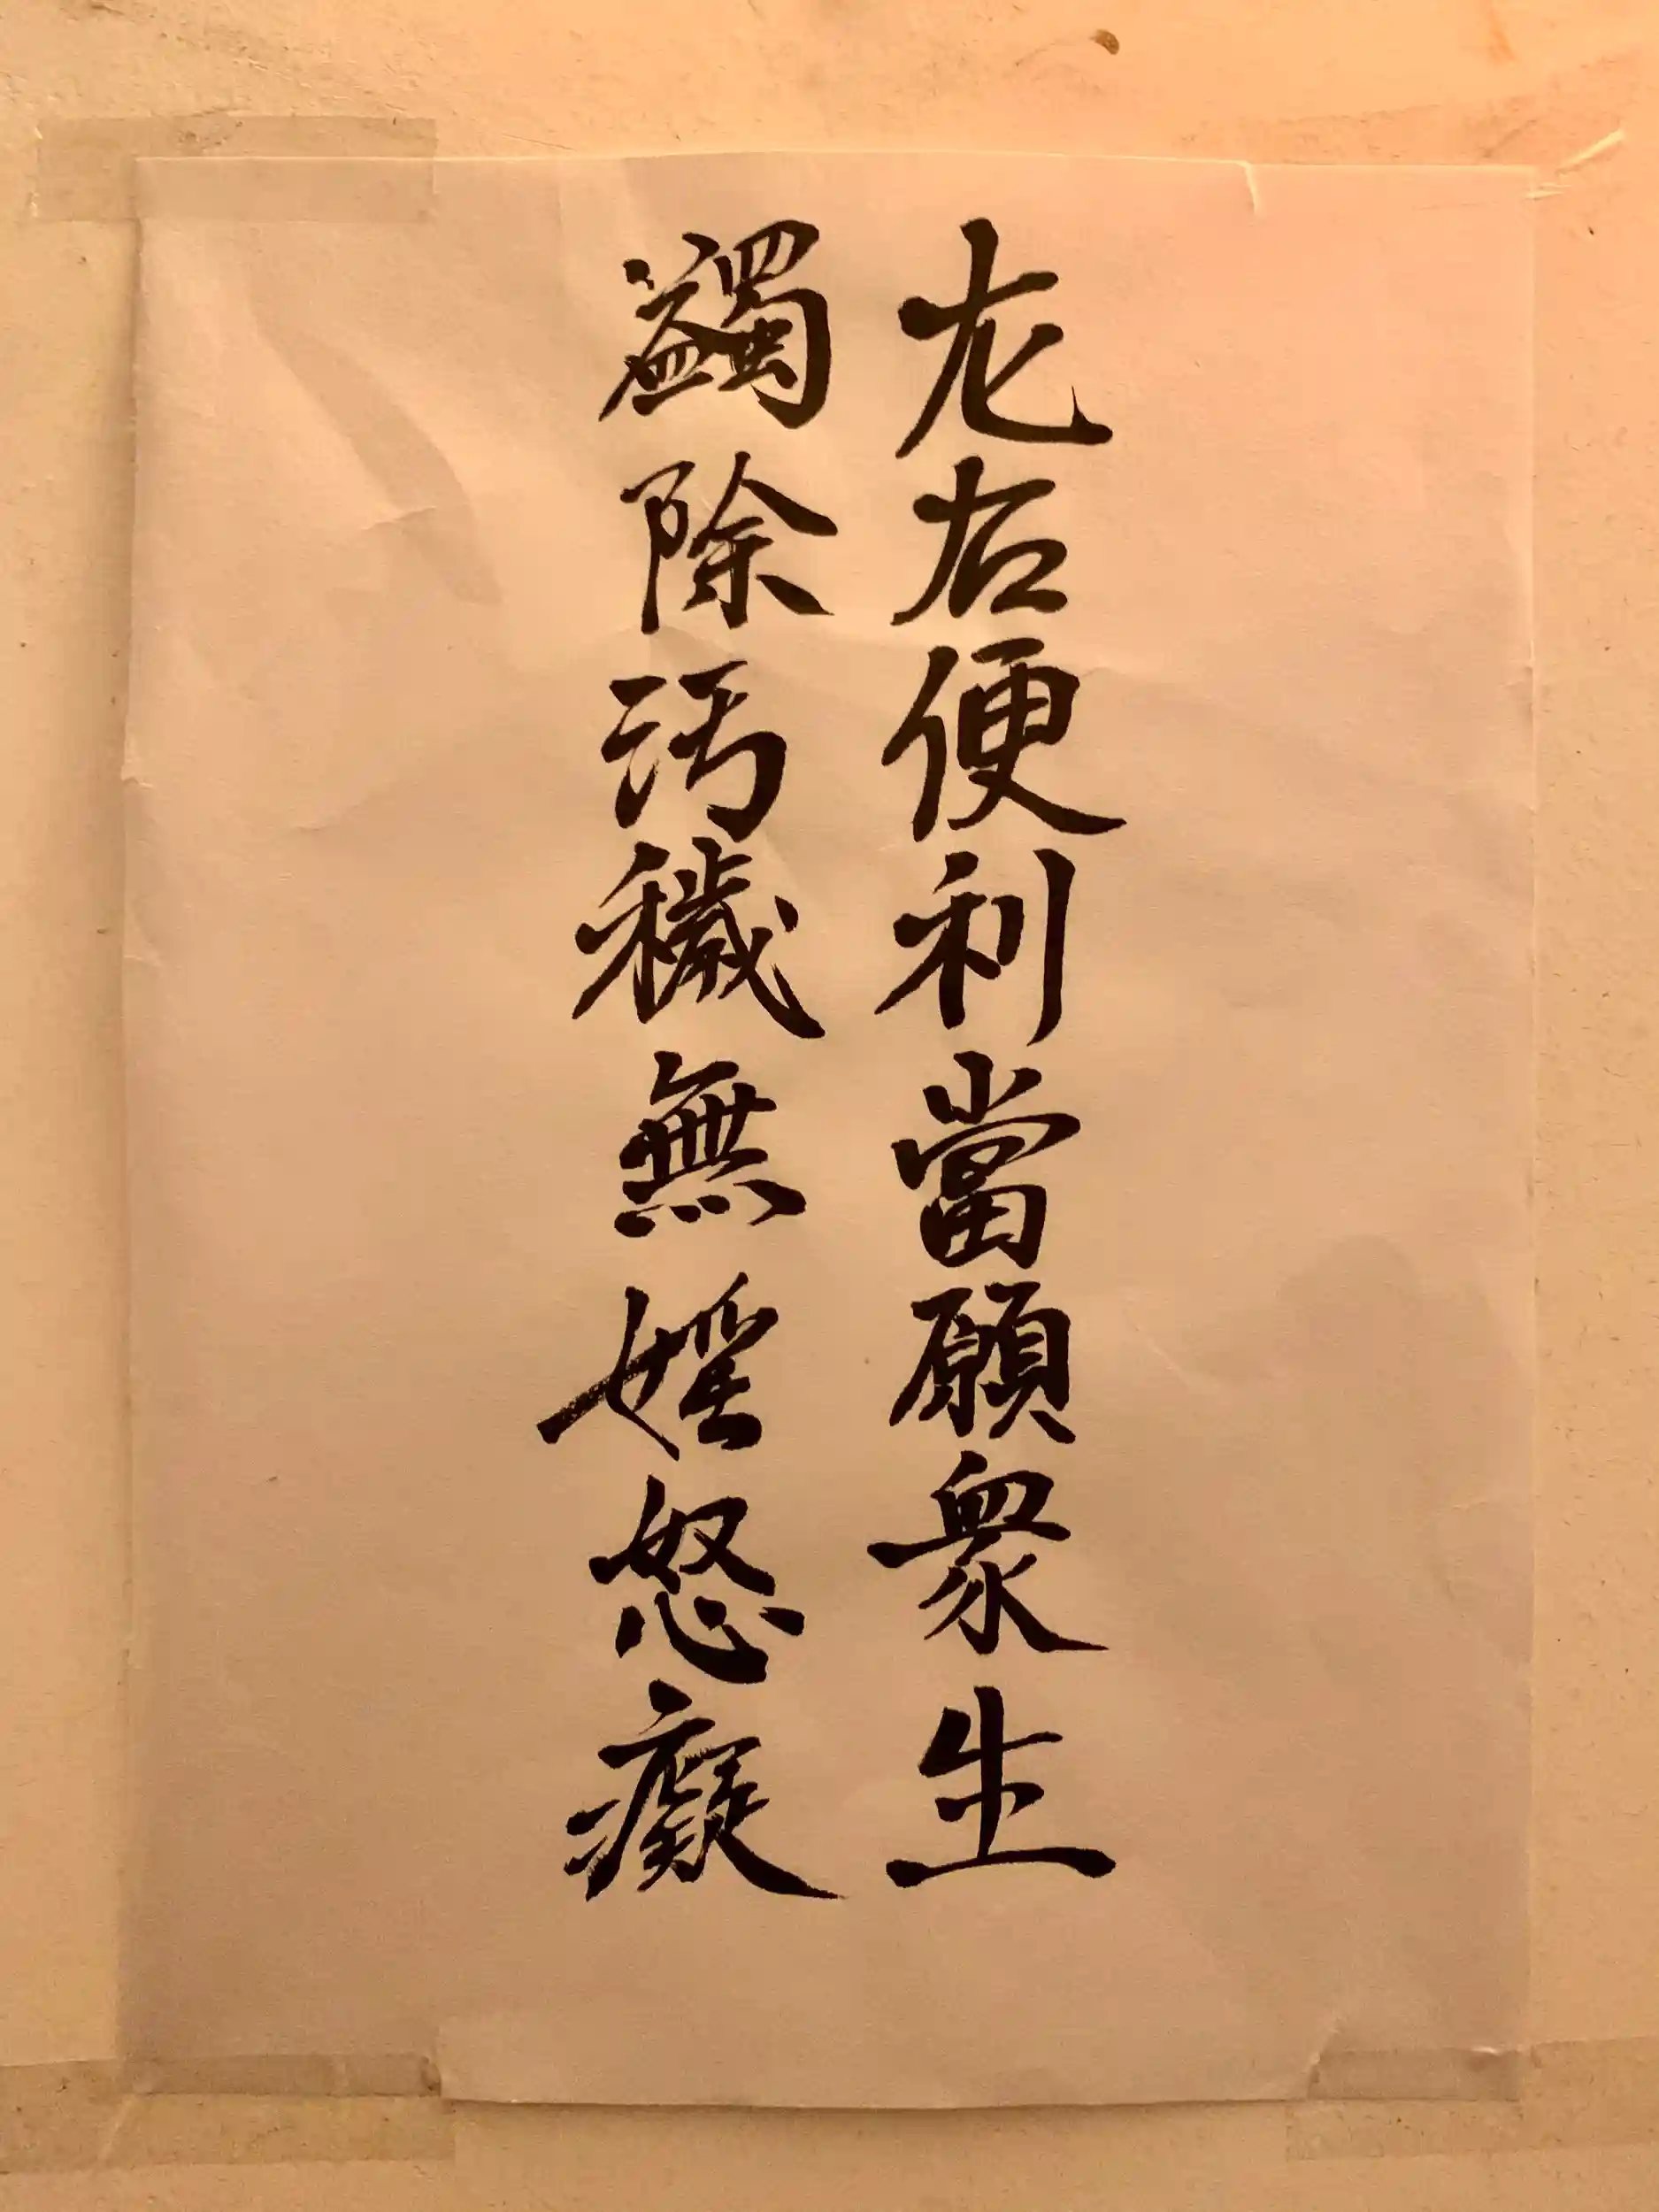 左右便利當願眾生
蠲除汚穢無婬怒癡